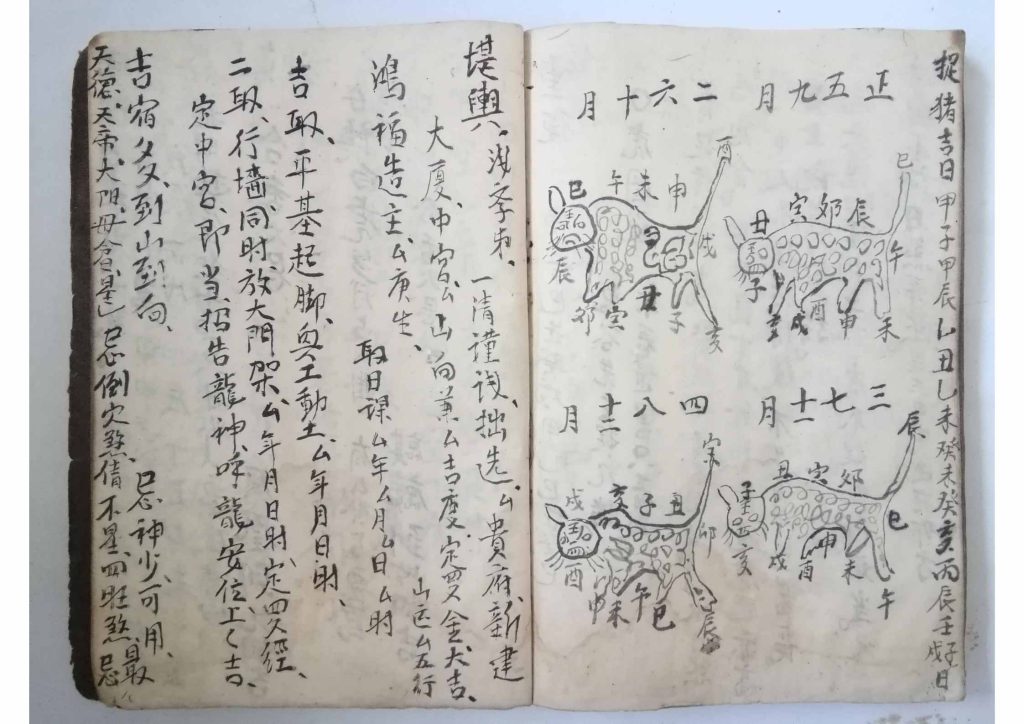 捉猪吉日甲子甲辰乚丑乙未癸未癸亥丙辰壬子戊日
正五九月
巳
丑寅卯辰
午
子
亥戌酉申未
二六十月
酉
巳午未申
戌
辰
卯寅丑子亥
三七十一月
辰
丑寅卯
子
巳
亥戌酉申未午
四八十二月
寅
戌亥子丑
卯
酉申未午巳辰
堪輿
一清謹詢拙选厶貴府新建
大厦中宮厶山向兼厶吉度定四叉金大吉
鴻福造主厶庚生
山运厶五行
取日課厶年厶月厶日厶时
吉取平基起脚與工動土厶年月日时
二取行墙同时放大門架厶年月日时定四叉經
定中宮即当招告龍神呼龍安位上〻吉
吉宿多到山到向
忌神少可用
天德天帝大門毋仓是忌倒欠煞債不星四旺煞最忌